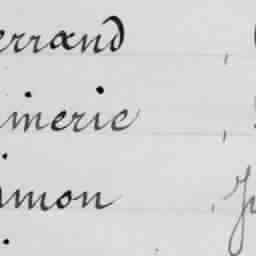 errand ,
imeric ,
imon ,